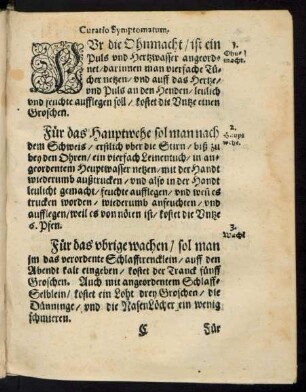 Curatio Symptomatum.
FVr die Ohnmacht / ist ein
Puls vnd Hertzwasser angeord-
net / darinnen man vierfache Tü-
cher netzen / vnd auff das Hertze /
vnd Puls an den Henden / leulich
vnd feuchte auffliegen soll / kostet die Vntze einen
Groschen.
1.
Ohn-
macht.
Für das Hauptwehe sol man nach
dem Schweis / erstlich vber die Stirn / biß zu
bey den Ohren / ein vierfach Leinentuch / in an-
geordentem Heuptwasser netzen / mit der Handt
wiederumb außtrucken / vnd also in der Handt
leulicht gemacht / feuchte aufflegen / vnd weñ es
trucken worden / wiederumb anfeuchten / vnd
aufflegen / weil es von nöten ist / kostet die Vntze
6. Pfen.
2.
Haupt
wehe.
Für das vbrige wachen / sol man
jm das verordente Schlafftrencklein / auff den
Abendt kalt eingeben / kostet der Tranck fünff
Groschen. Auch mit angeordentem Schlaff-
Selblein / kostet ein Loht drey Groschen / die
Dünninge / vnd die NasenLöcher ein wenig
schmieren.
3.
Wachẽ
C
Für